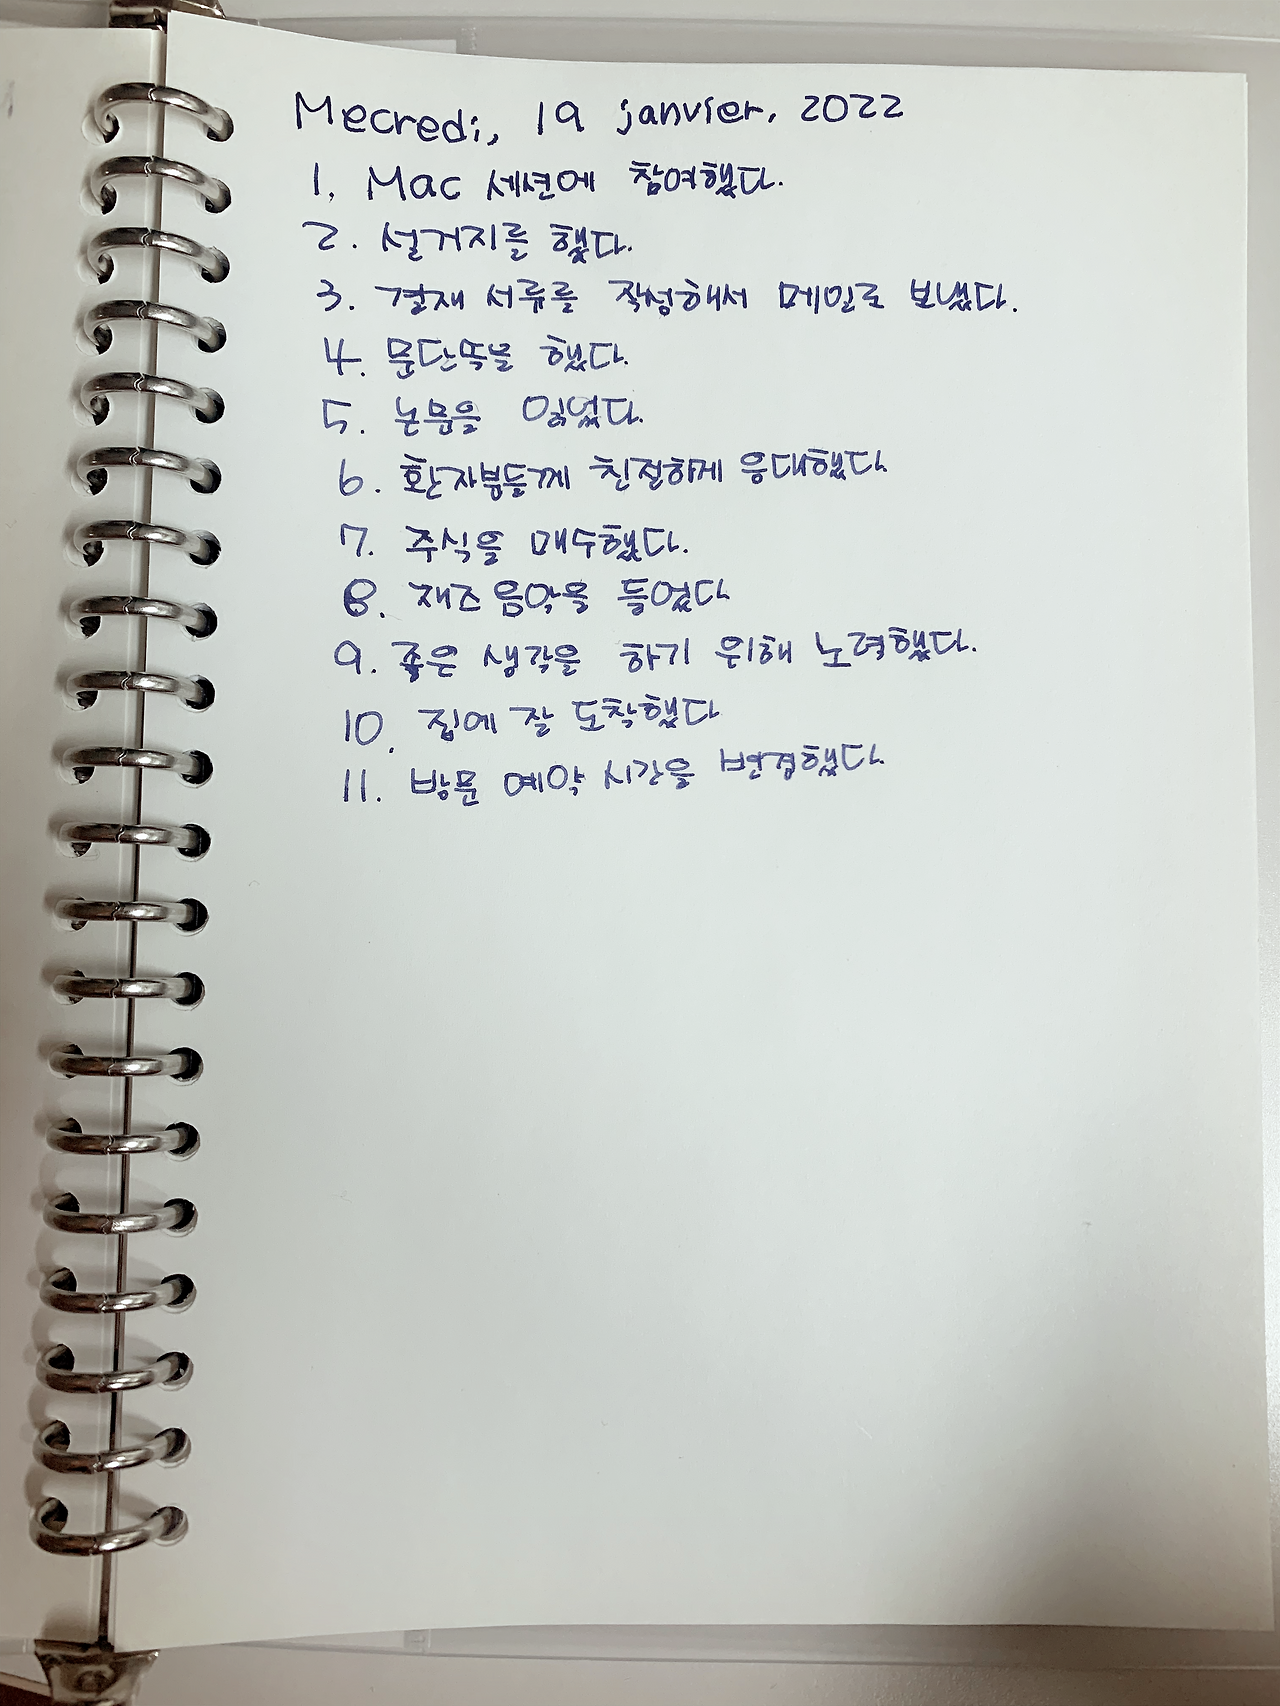 Mecredi, 19 janvier, 2022
1. Mac 세션에 참여했다.
2. 설거지를 했다.
3. 결재 서류를 작성해서 메일로 보냈다.
4. 문단뚝을 했다.
5. 논문을 읽었다.
6. 환자분들께 친절하게 응대했다
7. 주식을 매수했다.
8. 재즈 음악을 들었다
9. 좋은 생각을 하기 위해 노력했다.
10. 집에 잘 도착했다
11. 방문 예약 시간을 변경했다.